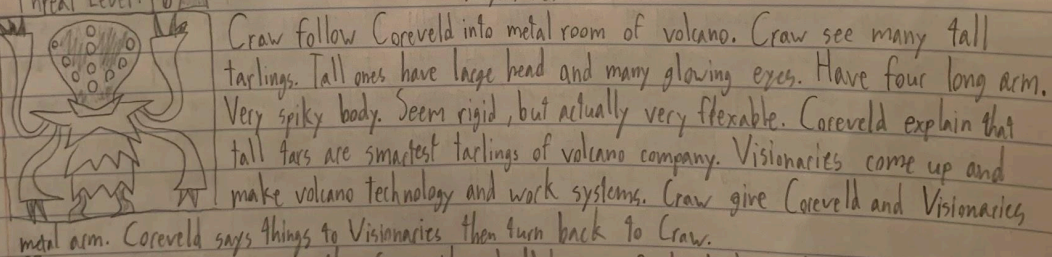 Threat Level:
Craw follow Coreveld into metal room of volcano. Craw see many tall
tarlings. Tall ones have large head and many glowing eyes. Have four long arm.
Very spiky body. Seem rigid, but actually very flexable. Coreveld explain that
tall tars are smartest tarlings of volcano company. Visionaries come up and
make volcano technology and work systems. Craw give Coreveld and Visionaries
metal arm. Coreveld says things to Visionaries then turn back to Craw.